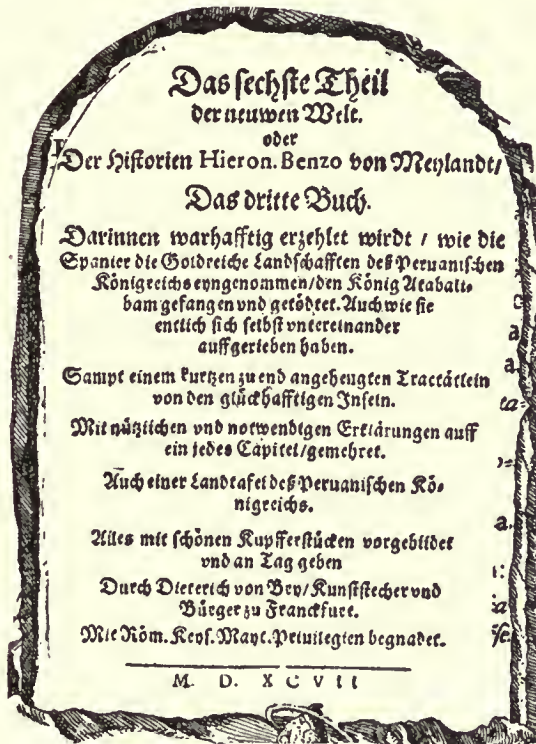 Das sechste Theil
der neuwen Welt.
oder
Der Historien Hieron. Benzo von Meylandt/
Das dritte Buch.
Darinnen warhafftig erzehlet wirdt / wie die
Spanier die Goldreiche Landschafften deß Peruanischen
Königreichs eyngenommen/den König Atabali-
bam gefangen vnd getödtet. Auch wie sie
entlich sich selbst vntereinander
auffgerieben haben.
Sampt einem kurtzen zu end angehengten Tractätlein
von den glückhafftigen Inseln.
Mit nützlichen vnd notwendigen Erklärungen auff
ein jedes Capitel/gemehret.
Auch einer Landtafel deß Peruanischen Kö-
nigreichs.
Alles mit schönen Kupfferstücken vorgebildet
vnd an Tag geben
Durch Dieterich von Bry/Kunststecher vnd
Bürger zu Franckfurt.
Mit Röm. Keys. Mayt. Priuilegien begnadet.
M. D. XCVII